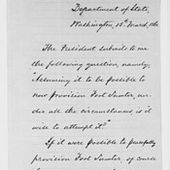 Department of State,
Washington, 15th March, 1861
The President submits to me
the following question, namely,
"Assuming it to be possible to
now provision Fort Sumter, un-
der all the circumstances, is it
wise to attempt it."
If it were possible to peacefully
provision Fort Sumter, of course